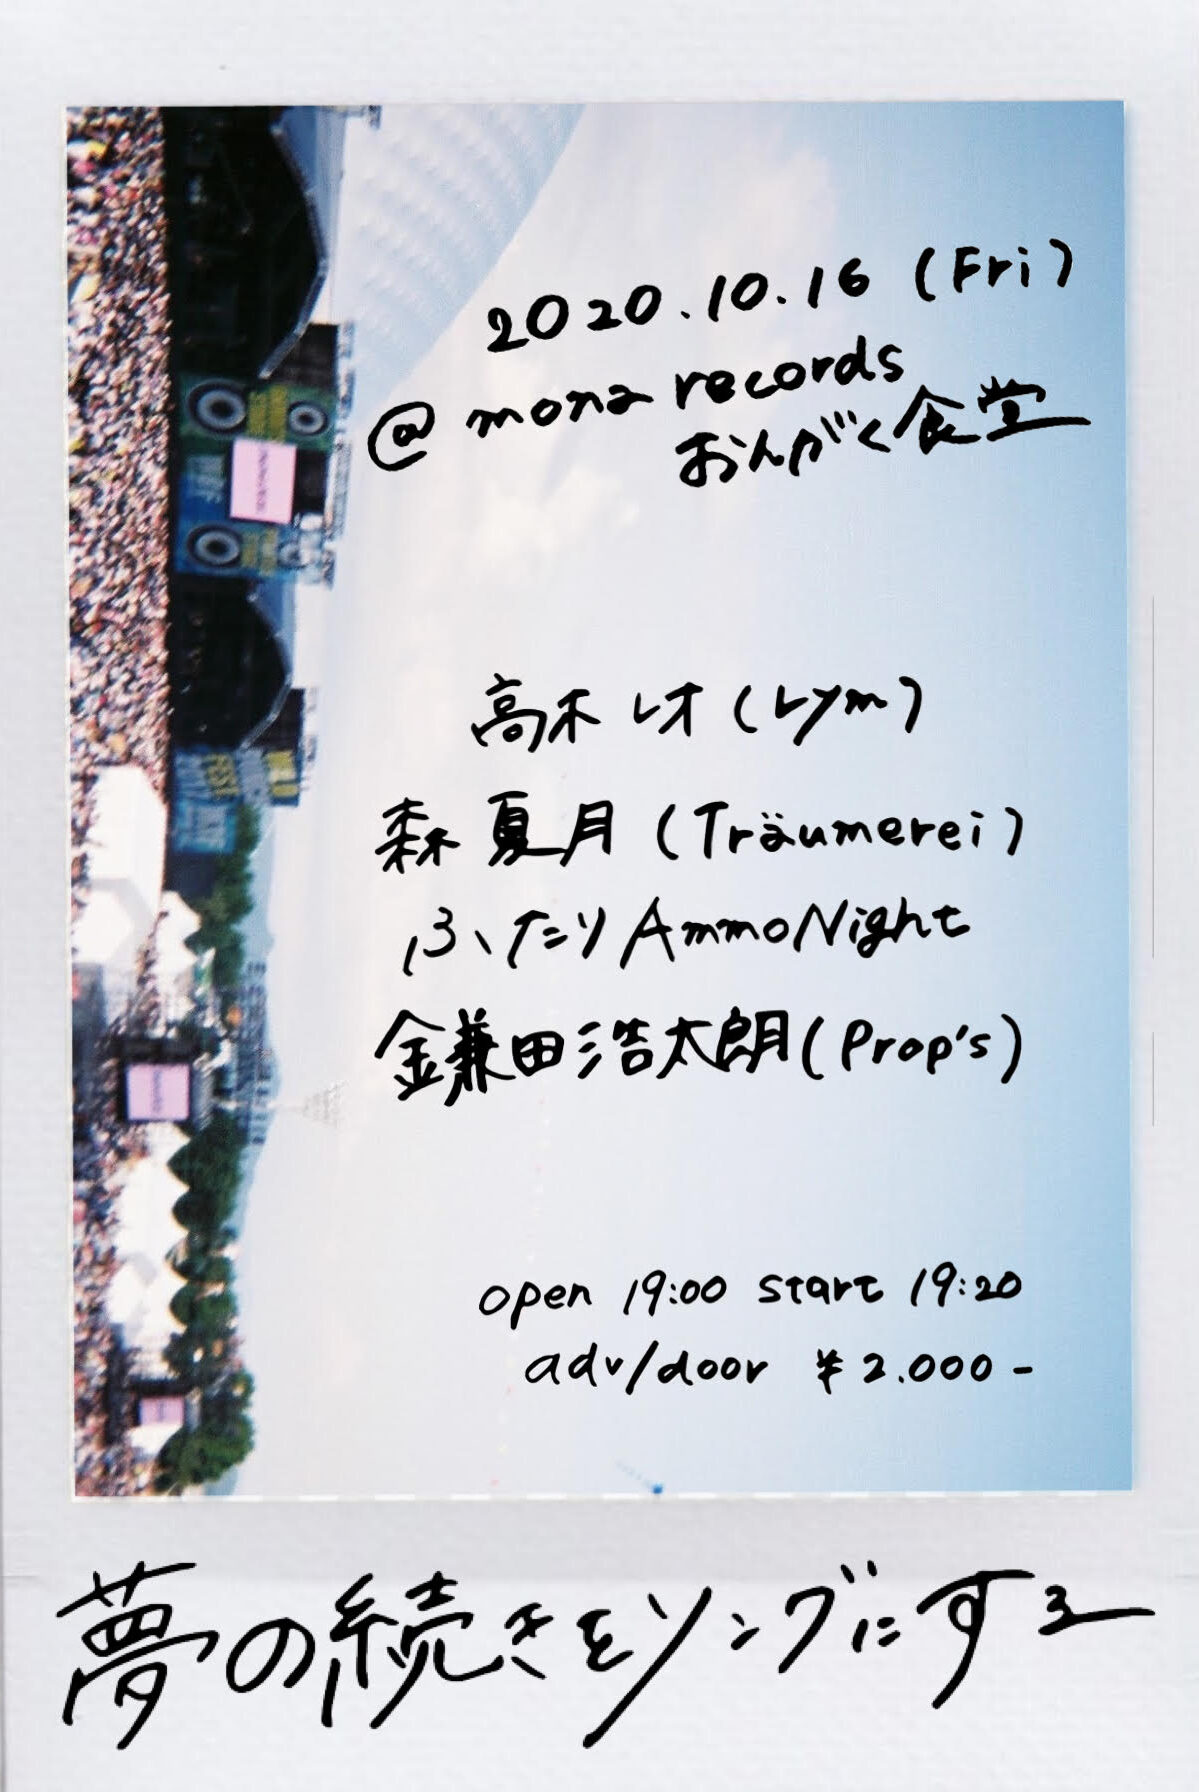 2020.10.16 (Fri)
@ mona records
おんがく食堂
高木レオ (Lym)
森 夏月 (Träumerei)
ふたりAmmoNight
鎌田浩太朗 (Prop's)
open 19:00 start 19:20
adv/door ¥2.000-
夢の続きをソングにする